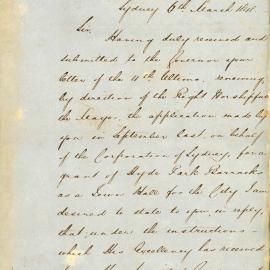 Sydney 6th March 1848.
Sir,
Having duly received and
submitted to the Governor your
letter of the 11th Ultimo, renewing,
by direction of the Right Worshipful
the Mayor, the application made by
you in September last, on behalf
of the Corporation of Sydney, for a
grant of Hyde Park Barracks
as a Town Hall for the City I am
desired to state to you in reply,
that, under the instructions
which His Excellency has received